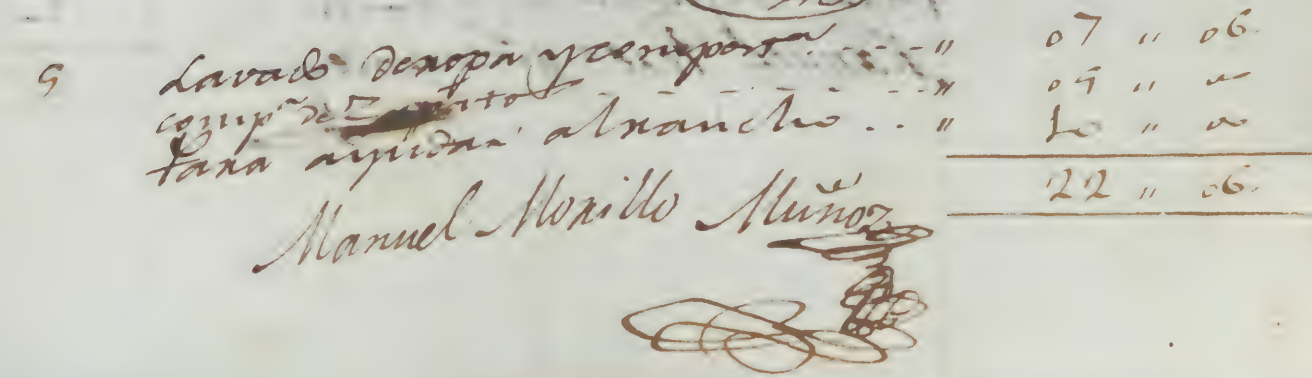 5 Lavado de ropa y compost.ª . . . . „ 07 „ 06.
comp.ª de Zapatos . . . . „ 05 „ „
Para ayudar al rancho . . „ 10 „ „
22 „ 06.
Manuel Morillo Muñoz